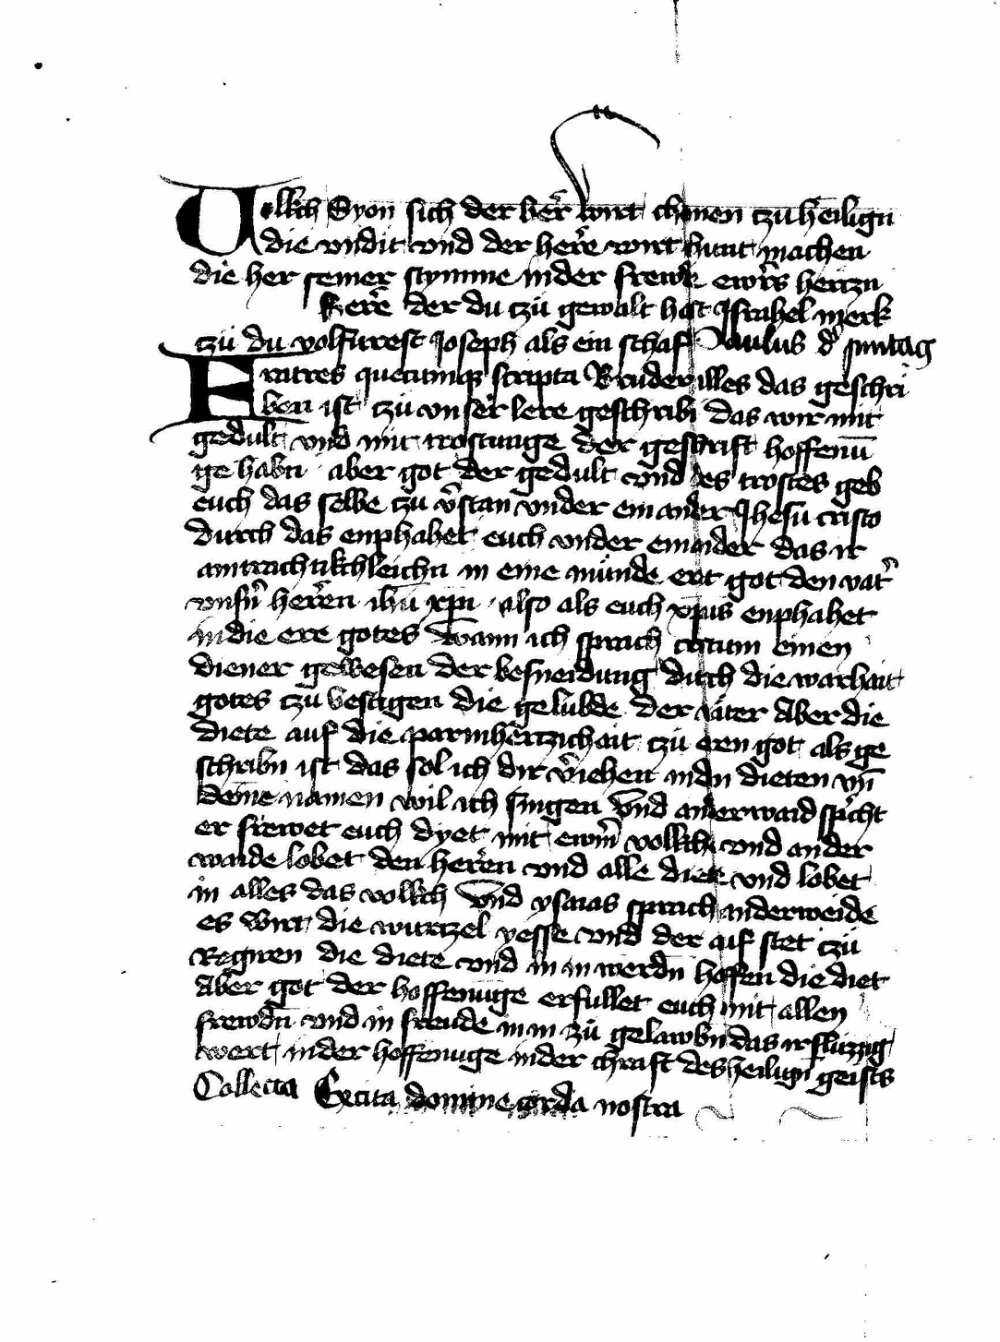 Uolkch Syon sich der her̄ wirt chomen tzu heilign
die vndit vnd der her̄e wirt kunt machen
die her seiner stymme in der frewde ewrs hertzn
Her̄e der du tzu gewalt hast Israhel merk
tzu du volfurest Joseph als ein schaf Paulus d' suntag
Fratres quecumq scripta Bruder illes das geschri
ben ist tzu vnser lere geschribn das wir mit
gedult vnd mit trostunge der geschrift hoffenū
ge habn aber got der gedult vnd des trostes geb
euch das selbe tzu v̄stan vnder einander Jhesu cristo
durch das enphahet euch vnder einander das ir
aintrachtikchleichn in eine munde ert got den vat'
vnsn̄ heren ihū xpn also als euch xpus enphahet
in die ere gotes Wann ich sprach cristum einen
diener gewesen der besneidung durch die warhait
gotes tzu vestigen die gelubde der vater Aber die
diete auf die parmhertzichait tzu eren got als ge
schribn ist das sol ich dir v̄iehen in dn dieten vn̄
deine namen wil ich singen vnd anderwaid spricht
er frewet euch dyet mit ewm̄ volkch vnd ander
waide lobet den heren vnd alle diete vnd lobet
in alles das volkch vnd ysaias sprach anderweide
es wirt die wurtzel yesse vnd der auf stet tzu
Regiren die diete vnd in in werdn hoffen die diet
Aber got der hoffenuge erfullet euch mit allen
frewdn vnd in freude in in zu gelawbn das ir fluzzig
wert in der hoffenuge in der chraft des heilign geists
Collecta Excita domine corda nostra